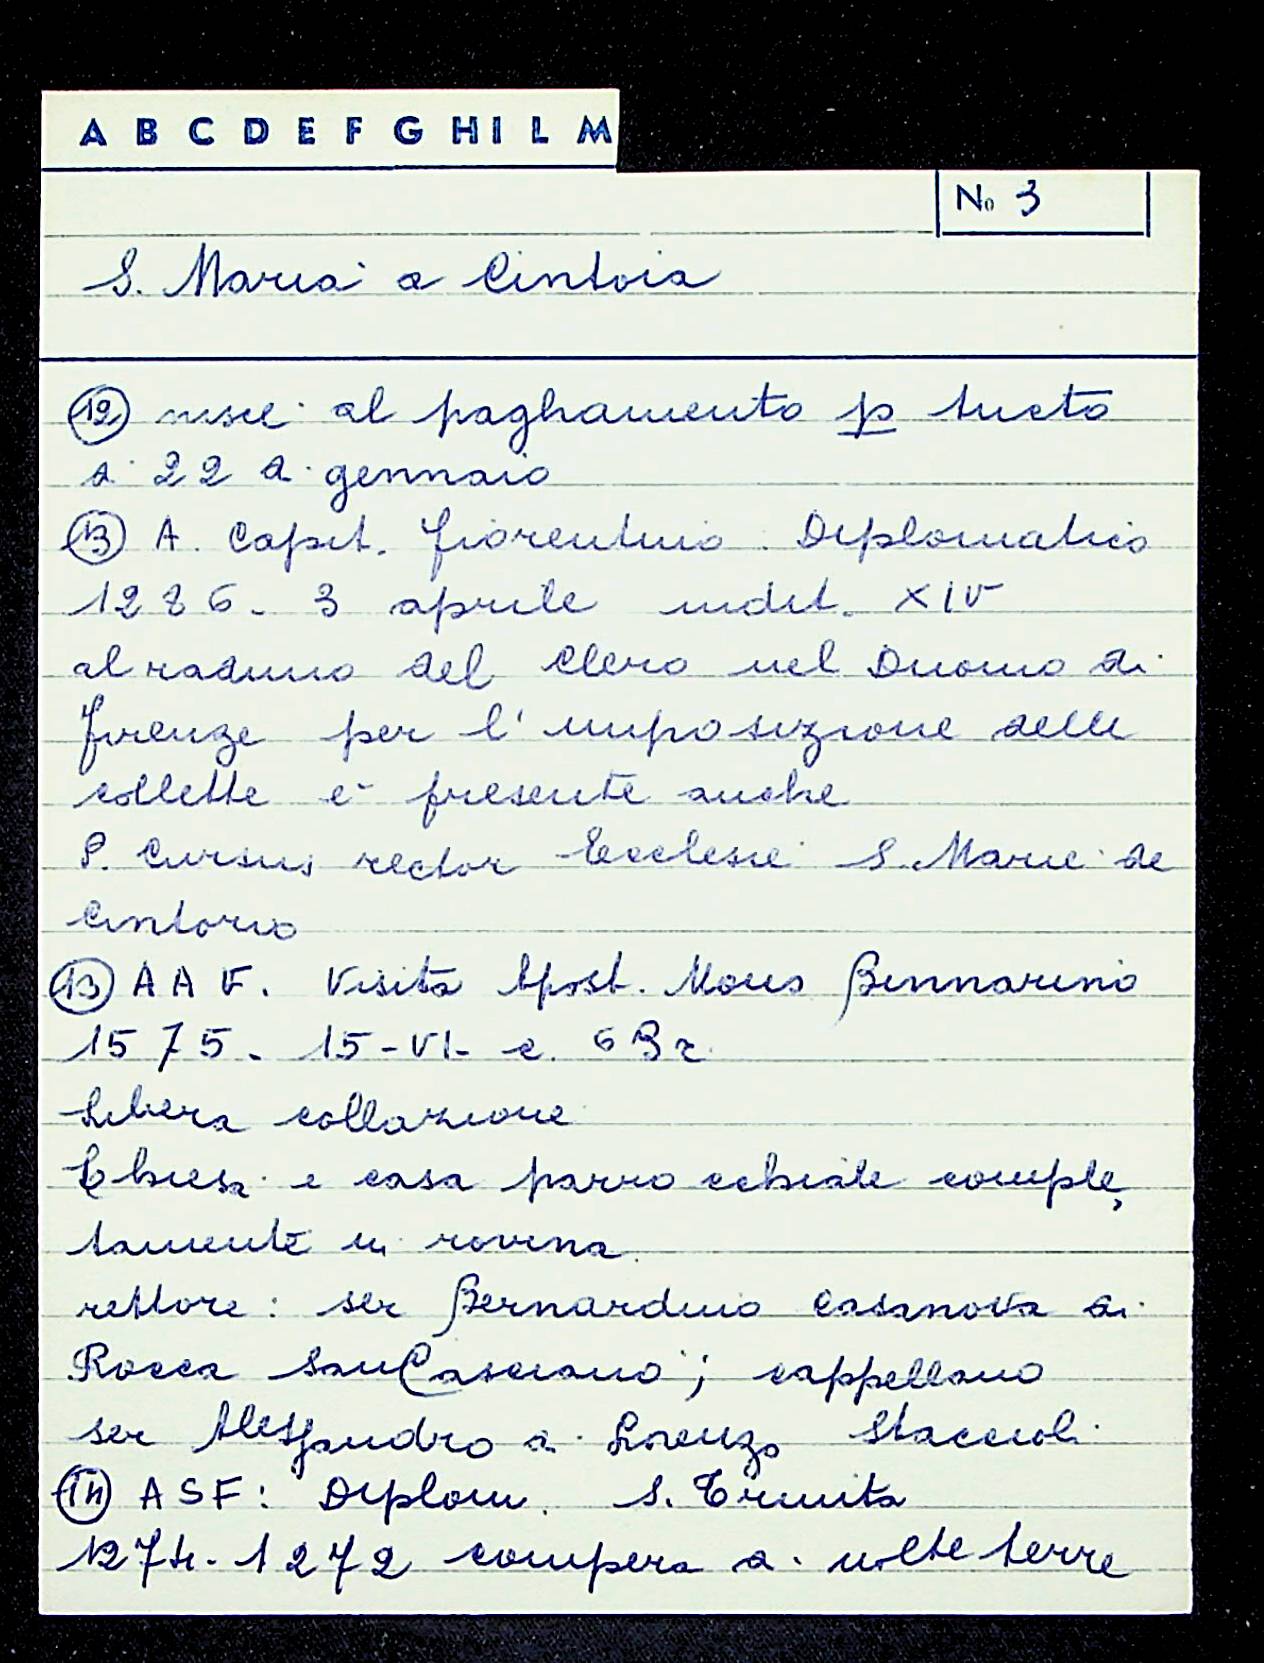 A B C D E F G H I L M
No 3
S. Maria a Cintoia
(12) al paghamento p tucto
a 22 di gennaio
(13) A. Capit. Fiorentino. Diplomatico
1286. 3 aprile indit. XIV
al raduno del Clero nel Duomo di
Firenze per l'imposizione delle
collette è presente anche
P. Cursus rector Ecclesie S. Marie de
Cintorio
(13) A A F. Visita Apost. Mons Binnarino
1575. 15-VI- c. 63r
Libera collazione
Chiesa e casa parrocchiale comple,
tamente in rovina
rettore: ser Bernardino Casanova di
Rocca San Casciano; cappellano
ser Alessandro di Lorenzo Staccioli
(14) ASF: Diplom. S. Trinita
1274-1272 compera di molte terre